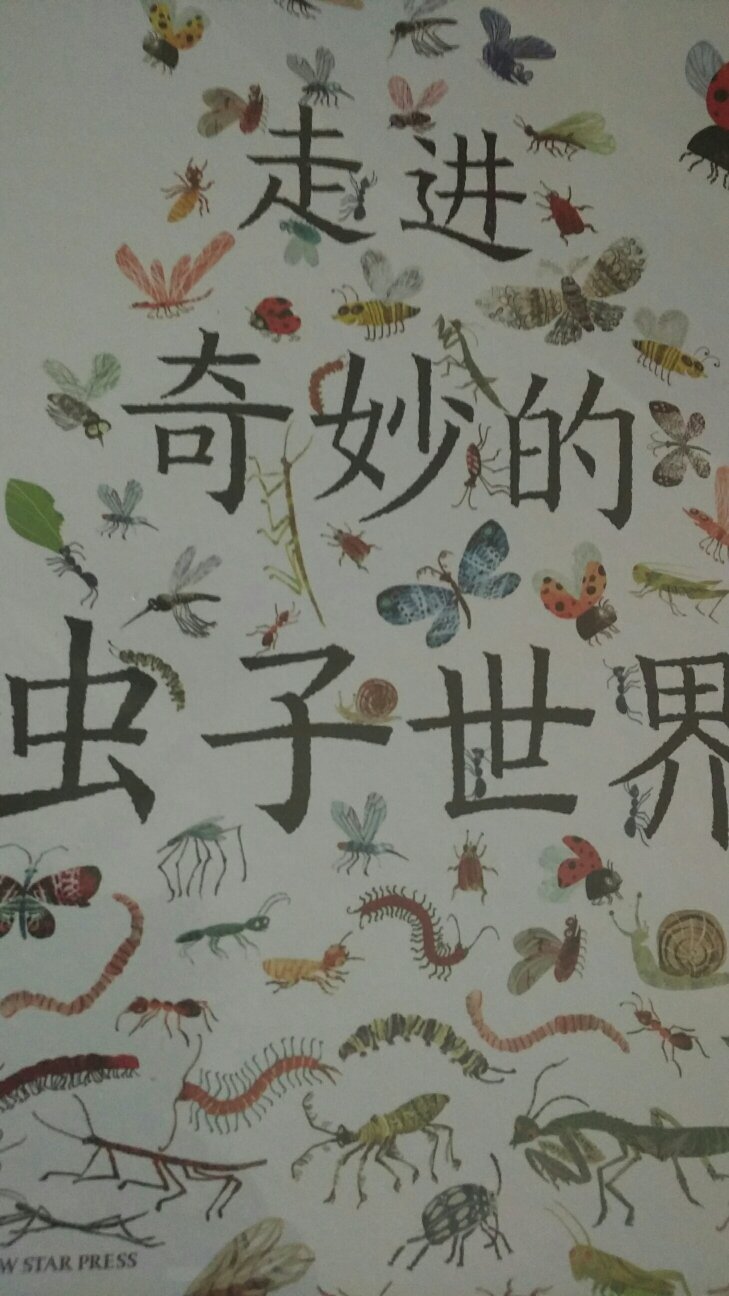 走进
奇妙的
虫子世界
W STAR PRESS